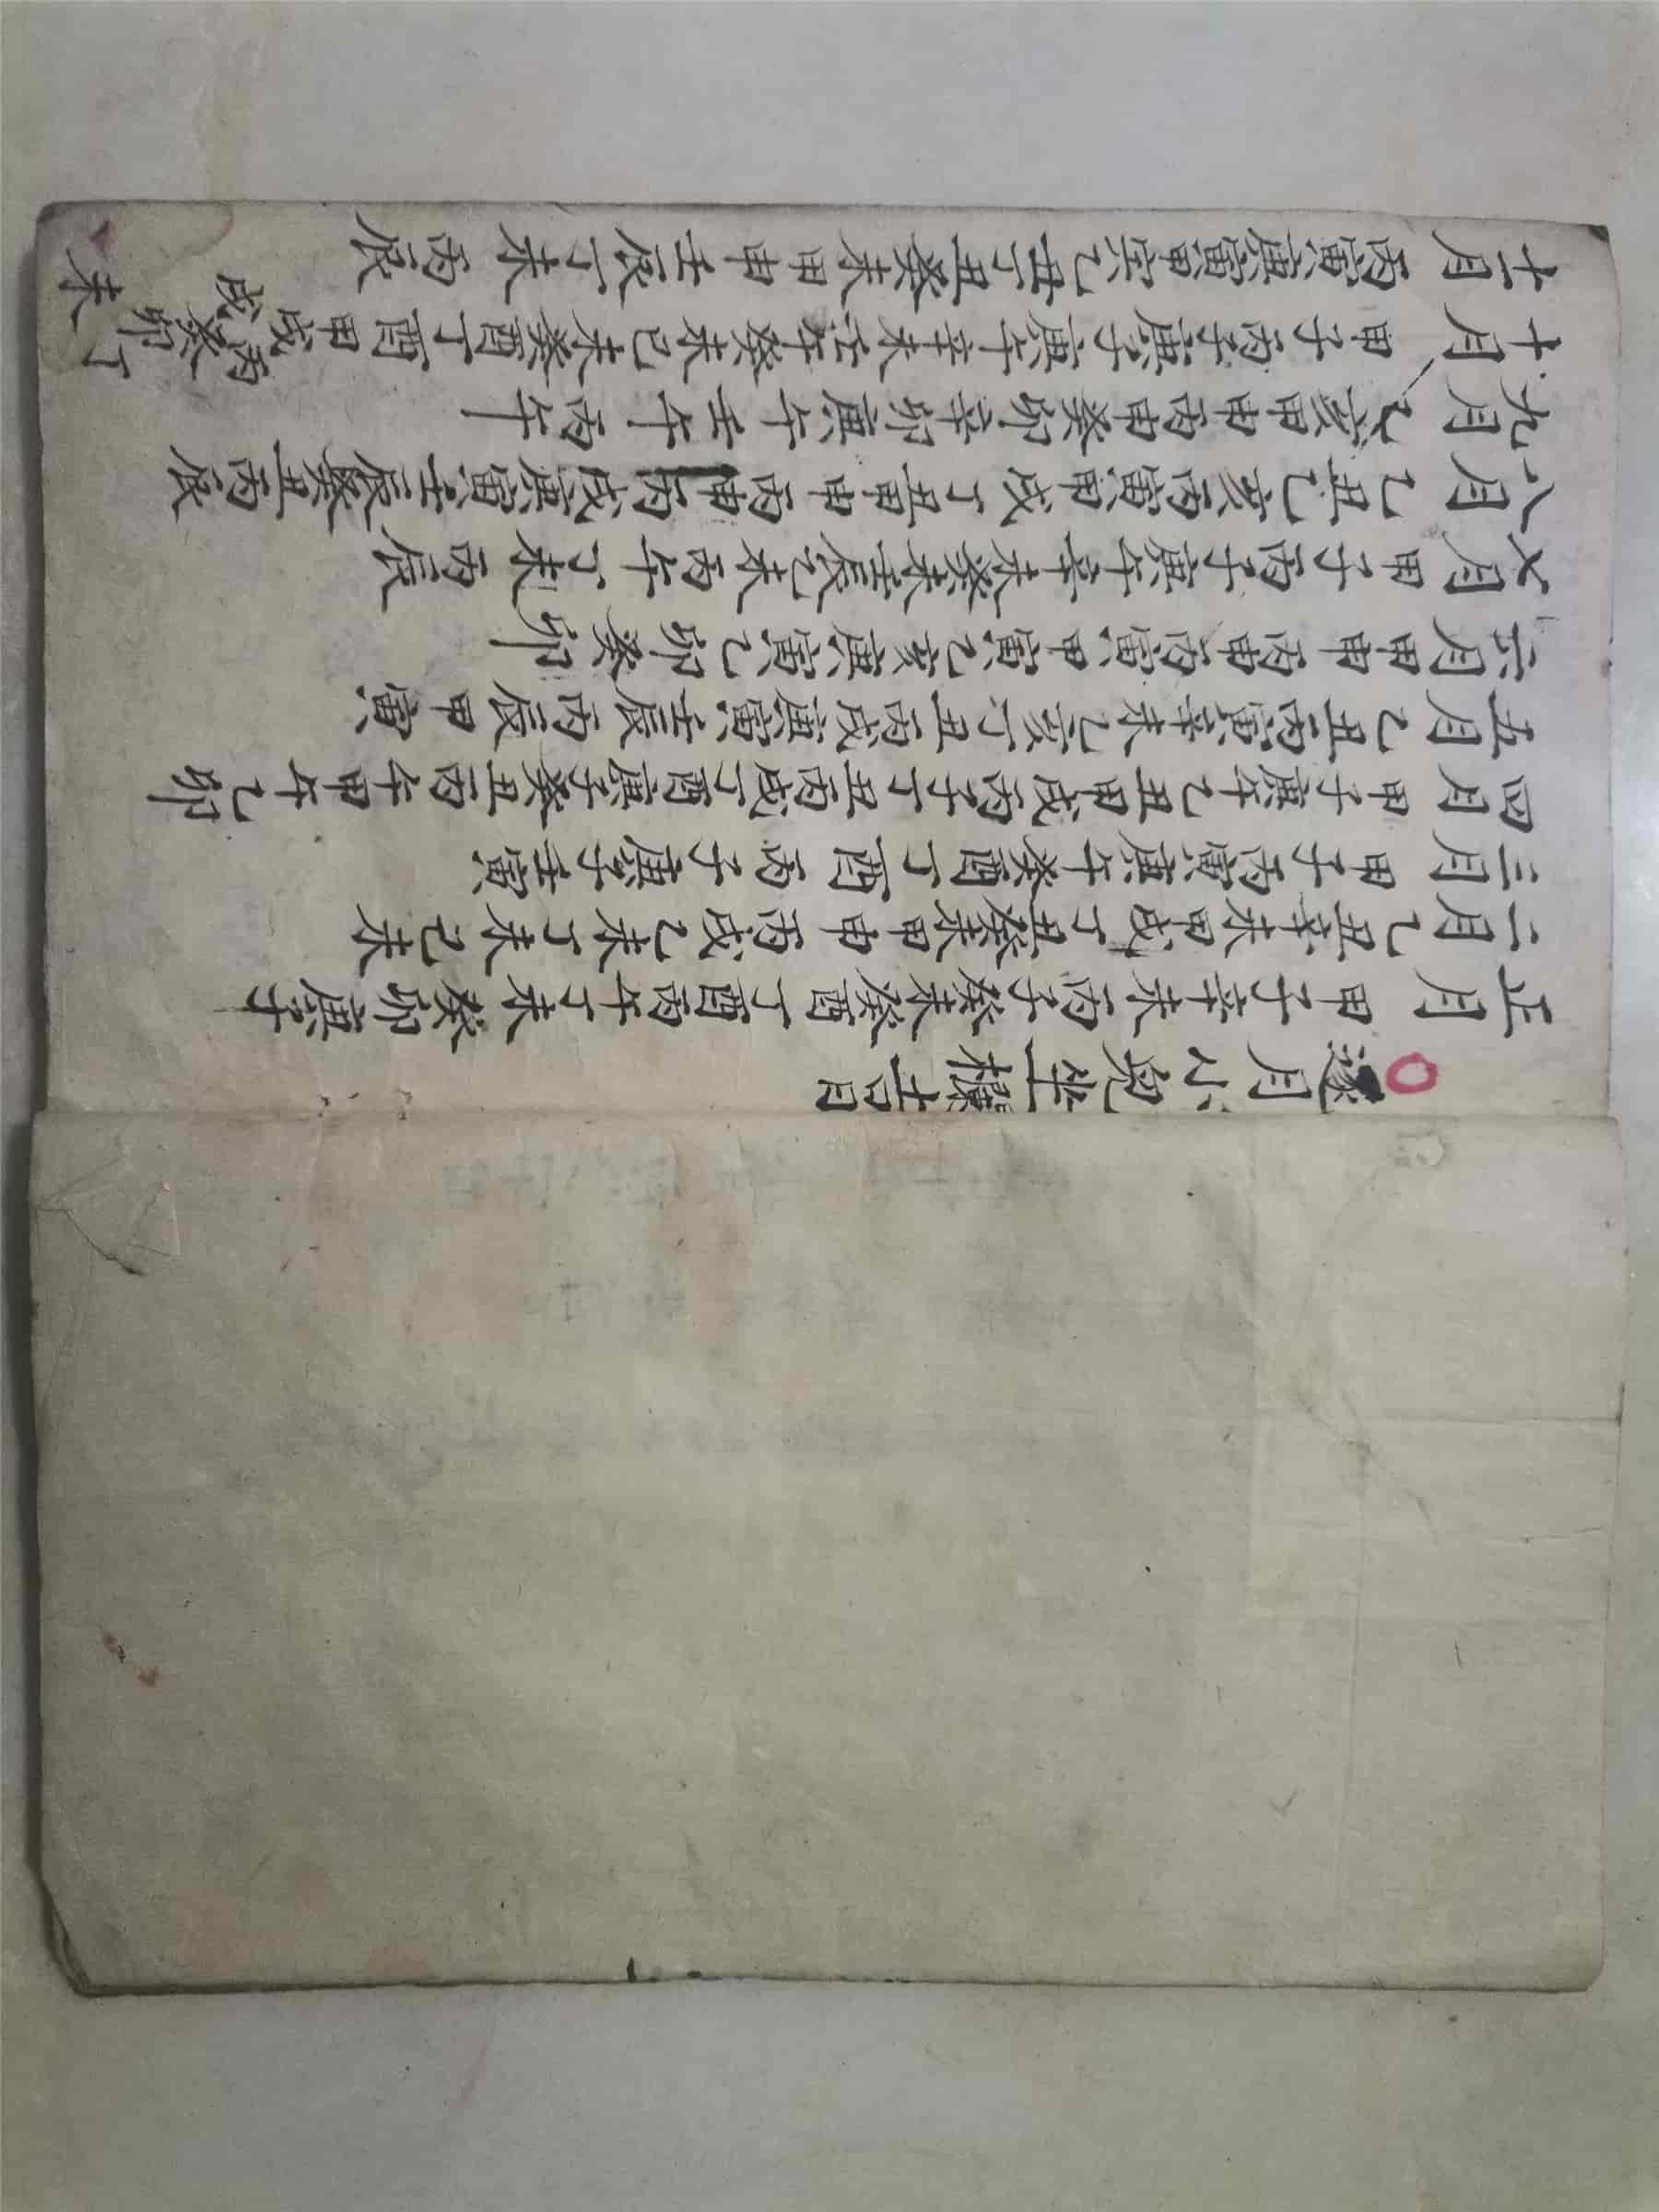 逐月小兒坐欄吉日
正月甲子辛未丙子癸未癸酉丁酉丙午丁未癸卯庚子
二月乙丑辛未甲戌丁丑癸未甲申丙戌乙未丁未己未
三月甲子丙寅庚午癸酉丁酉丙子庚子壬寅
四月甲子庚午乙丑甲戌丙子丁丑丙戌丁酉庚子癸丑丙午甲午己卯
五月乙丑丙寅辛未乙亥丁丑丙戌庚寅壬辰丙辰甲寅
六月甲申丙申丙寅甲寅乙亥庚寅己卯癸卯
七月甲子丙子庚午辛未癸未壬辰乙未丙午丁未丙辰
八月乙丑乙亥丙寅甲戌丁丑甲申丙申丙戌庚寅壬辰癸丑丙辰
九月乙亥甲申丙申癸卯辛卯庚午壬午丙午
十月甲子丙子庚子庚午辛未壬午癸未己未癸酉丁酉甲戌丙戌癸卯丁未
十一月丙寅庚寅甲寅乙丑丁丑癸未甲申壬辰丁未丙辰